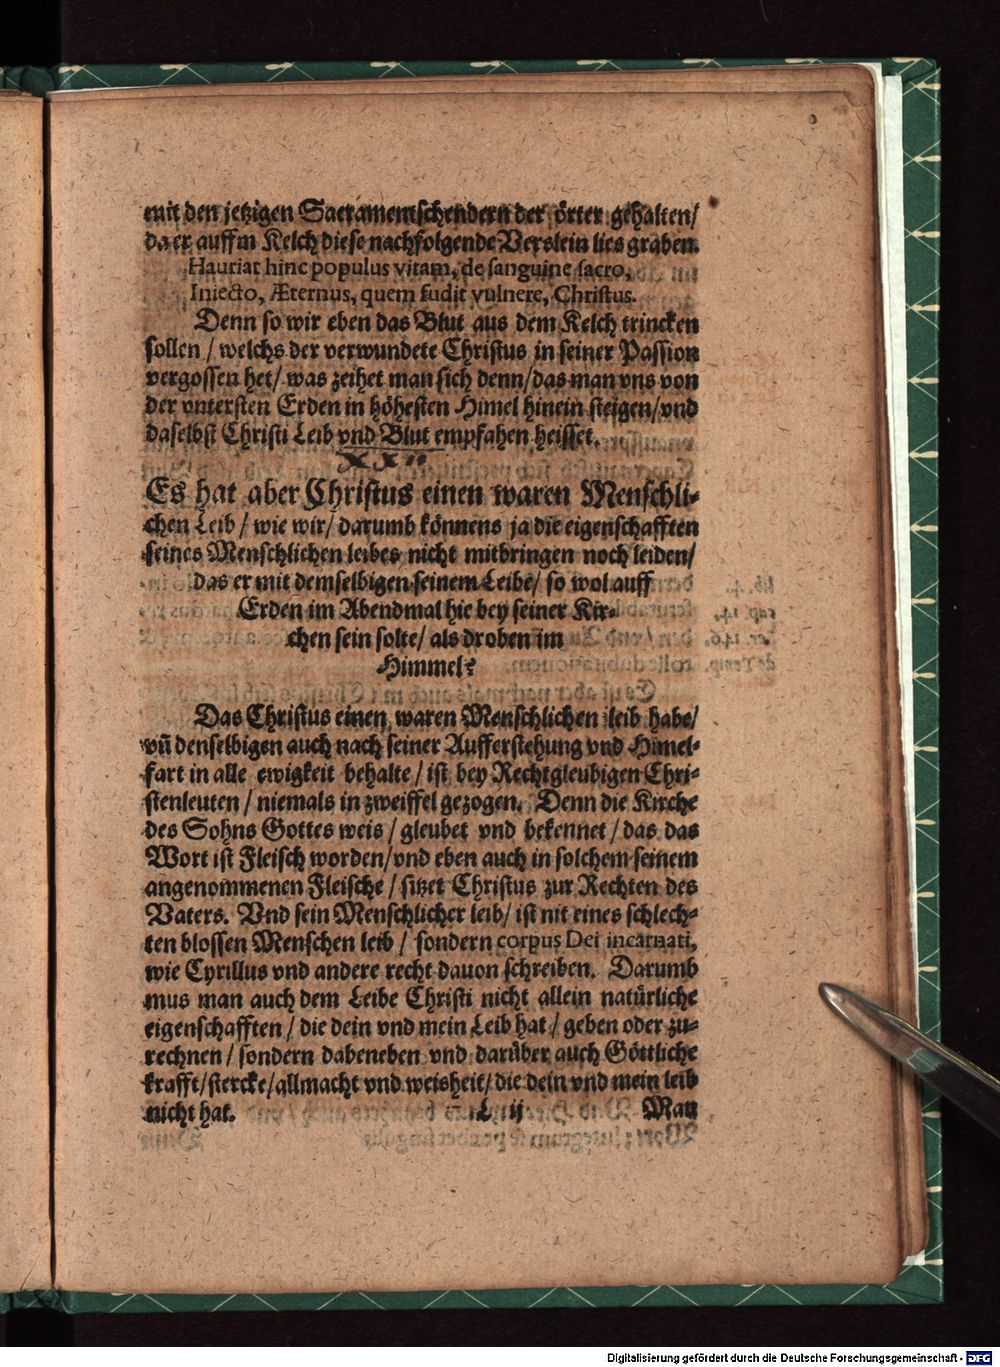 mit den jetzigen Sacramentschendern der örter gehalten/
da er auffm Kelch diese nachfolgende Verslein lies graben.
Hauriat hinc populus vitam, de sanguine sacro,
Iniecto, Æternus, quem fudit vulnere, Christus.
Denn so wir eben das Blut aus dem Kelch trincken
sollen / welchs der verwundete Christus in seiner Passion
vergossen het/ was zeihet man sich denn/das man vns von
der vntersten Erden in höhesten Himel hinein steigen/vnd
daselbst Christi Leib vnd Blut empfahen heisset.
XX
Es hat aber Christus einen waren Menschli-
chen Leib / wie wir/ darumb könnens ja die eigenschafften
seines Menschlichen leibes nicht mitbringen noch leiden/
das er mit demselbigen seinem Leibe/ so wol auff
Erden im Abendmal hie bey seiner Kir-
chen sein solte/ als droben im
Himmel?
Das Christus einen waren Menschlichen leib habe/
vñ denselbigen auch nach seiner Aufferstehung vnd Himel-
fart in alle ewigkeit behalte / ist bey Rechtgleubigen Chri-
stenleuten / niemals in zweiffel gezogen. Denn die Kirche
des Sohns Gottes weis / gleubet vnd bekennet / das das
Wort ist Fleisch worden/vnd eben auch in solchem seinem
angenommenen Fleische / sitzet Christus zur Rechten des
Vaters. Vnd sein Menschlicher leib/ ist nit eines schlech-
ten blossen Menschen leib / sondern corpus Dei incarnati,
wie Cyrillus vnd andere recht dauon schreiben. Darumb
mus man auch dem Leibe Christi nicht allein natürliche
eigenschafften / die dein vnd mein Leib hat / geben oder zu-
rechnen / sondern dabeneben vnd darüber auch Göttliche
krafft/stercke/allmacht vnd weisheit/ die dein vnd mein leib
nicht hat.
L ij Man
Digitalisierung gefördert durch die Deutsche Forschungsgemeinschaft - DFG